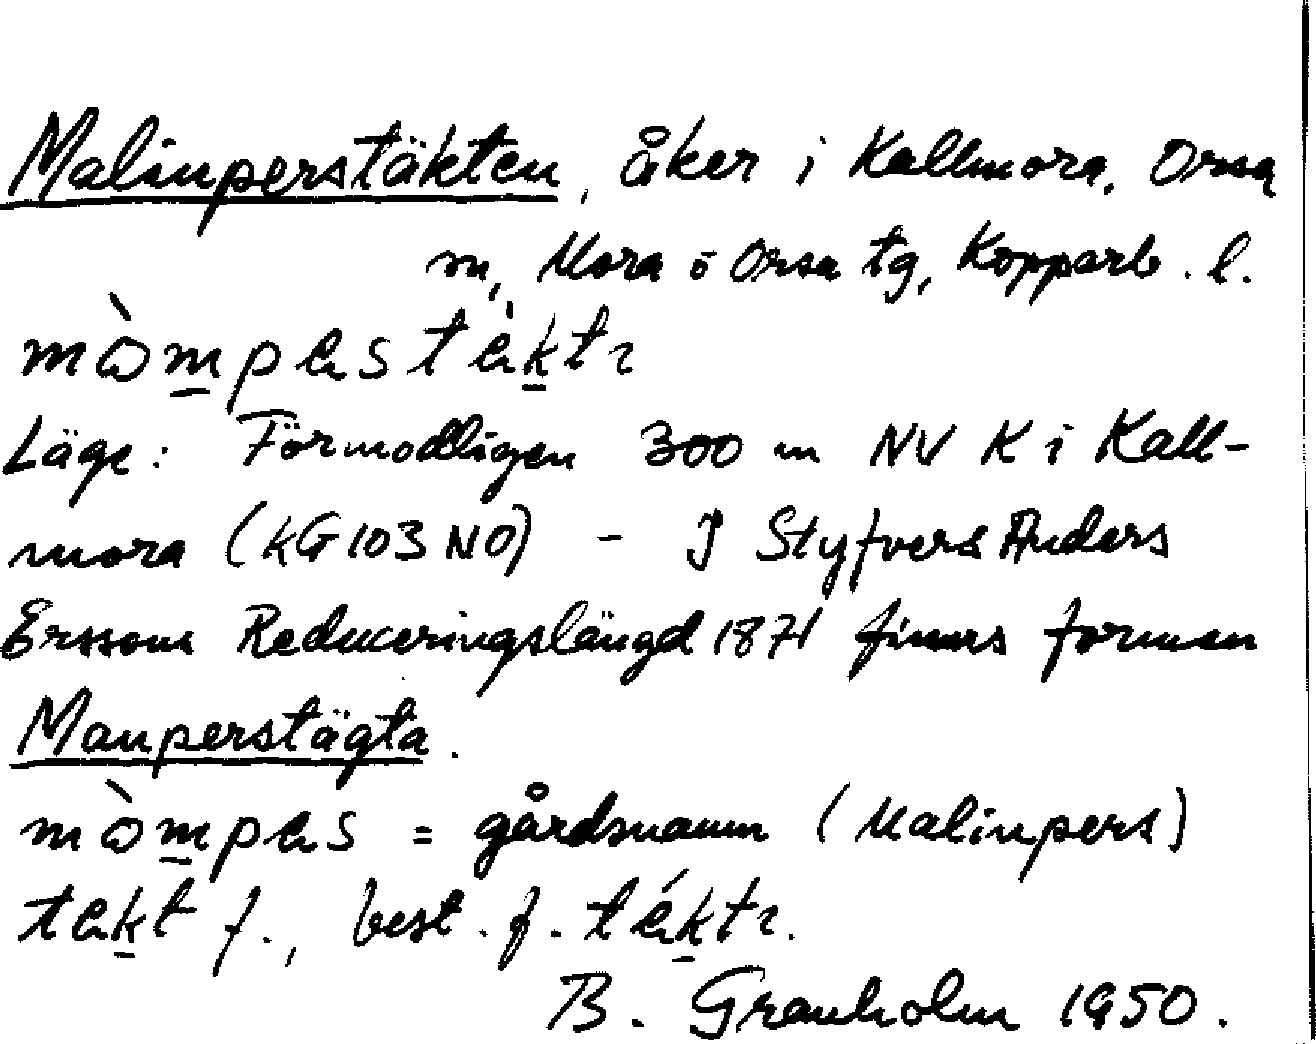 Malinperstäkten, åker i Kallmora, Orsa
sn, Mora o Orsa tg, Kopparb. l.
mòmpɐstɐ̀ktɪ
Läge: Förmodligen 300 m NV K i Kall-
mora (KG 103 NO) - I Styfvers Anders
Erssons Reduceringslängd 1871 finns formen
Manperstägta.
mòmpɐs = gårdsnamn (Malinpers)
tɐkt f., best. f. tɐ́ktɪ.
B. Granholm 1950.